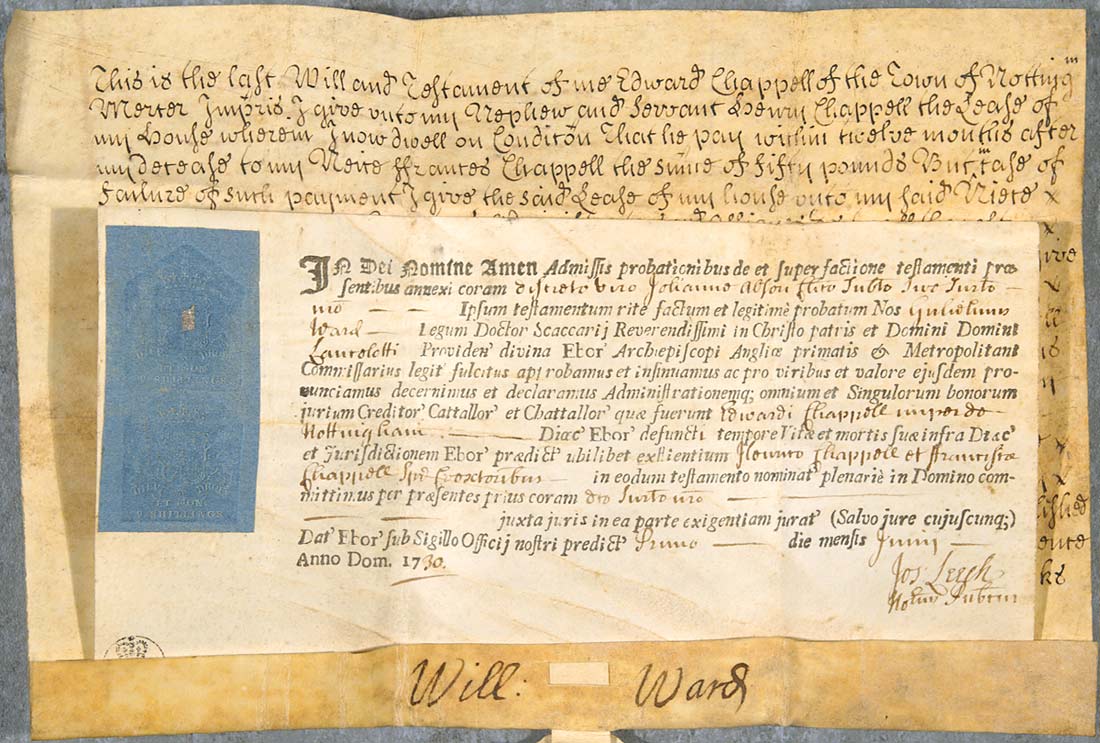 This is the last Will and Testament of me Edward Chappell of the Town of Notting^m
Mercer Impris. I give unto my Nephew and Servant Henry Chappell the Lease of
my House wherein I now dwell on Condicon That he pay within twelve months after
my decease to my Niece ffrances Chappell the sume of fifty pounds But in case of
Failure of such payment I give the said Lease of my house unto my said Niece x
IN Dei Nomine Amen Admissis probationibus de et super factione testamenti præ
sentibus annexi coram discreto viro Johanne
Ipsum testamentum rite factum et legitimè probatum Nos Gulielmus
Ward Legum Doctor Scaccarij Reverendissimi in Christo patris et Domini Domini
Lancelotti Providen' divina Ebor' Archiepiscopi Angliæ primatis & Metropolitani
Commissarius legit' fulcitus approbamus et insinuamus ac pro viribus et valore ejusdem pro-
nunciamus decernimus et declaramus Administrationemq; omnium et Singulorum bonorum
jurium Creditor' Cattallor' et Chattallor' quæ fuerunt Edwardi Chappell nuper de
Nottingham Diæc' Ebor' defuncti tempore Vitæ et mortis suæ infra Diæc'
et Jurisdictionem Ebor' prædict' ubilibet existentium Henrico Chappell et Franciscæ
Chappell Exōtoribus in eodum testamento nominat' plenariè in Domino com-
mittimus per præsentes prius coram
juxta juris in ea parte exigentiam jurat' (Salvo jure cujuscunq;)
Dat' Ebor' sub Sigillo Officij nostri predict' Primo die mensis Junij
Anno Dom. 1730.
Jos Leech
Will: Ward